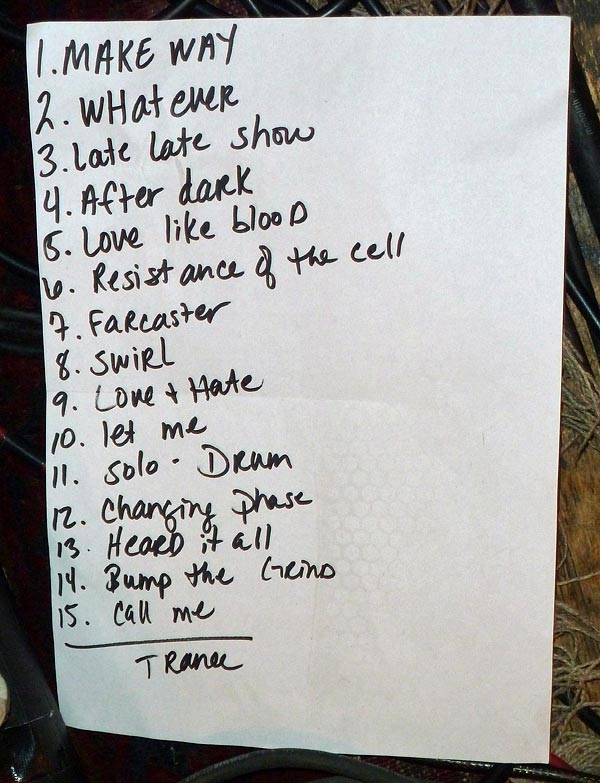 1. MAKE WAY
2. WHatever
3. Late Late show
4. After dark
5. Love like blooD
6. Resistance of the cell
7. FaRcasteR
8. SwiRL
9. Love + Hate
10. let me
11. solo - DRum
12. Changing phase
13. HeaRD it all
14. Bump the GRinD
15. Call me
TRance